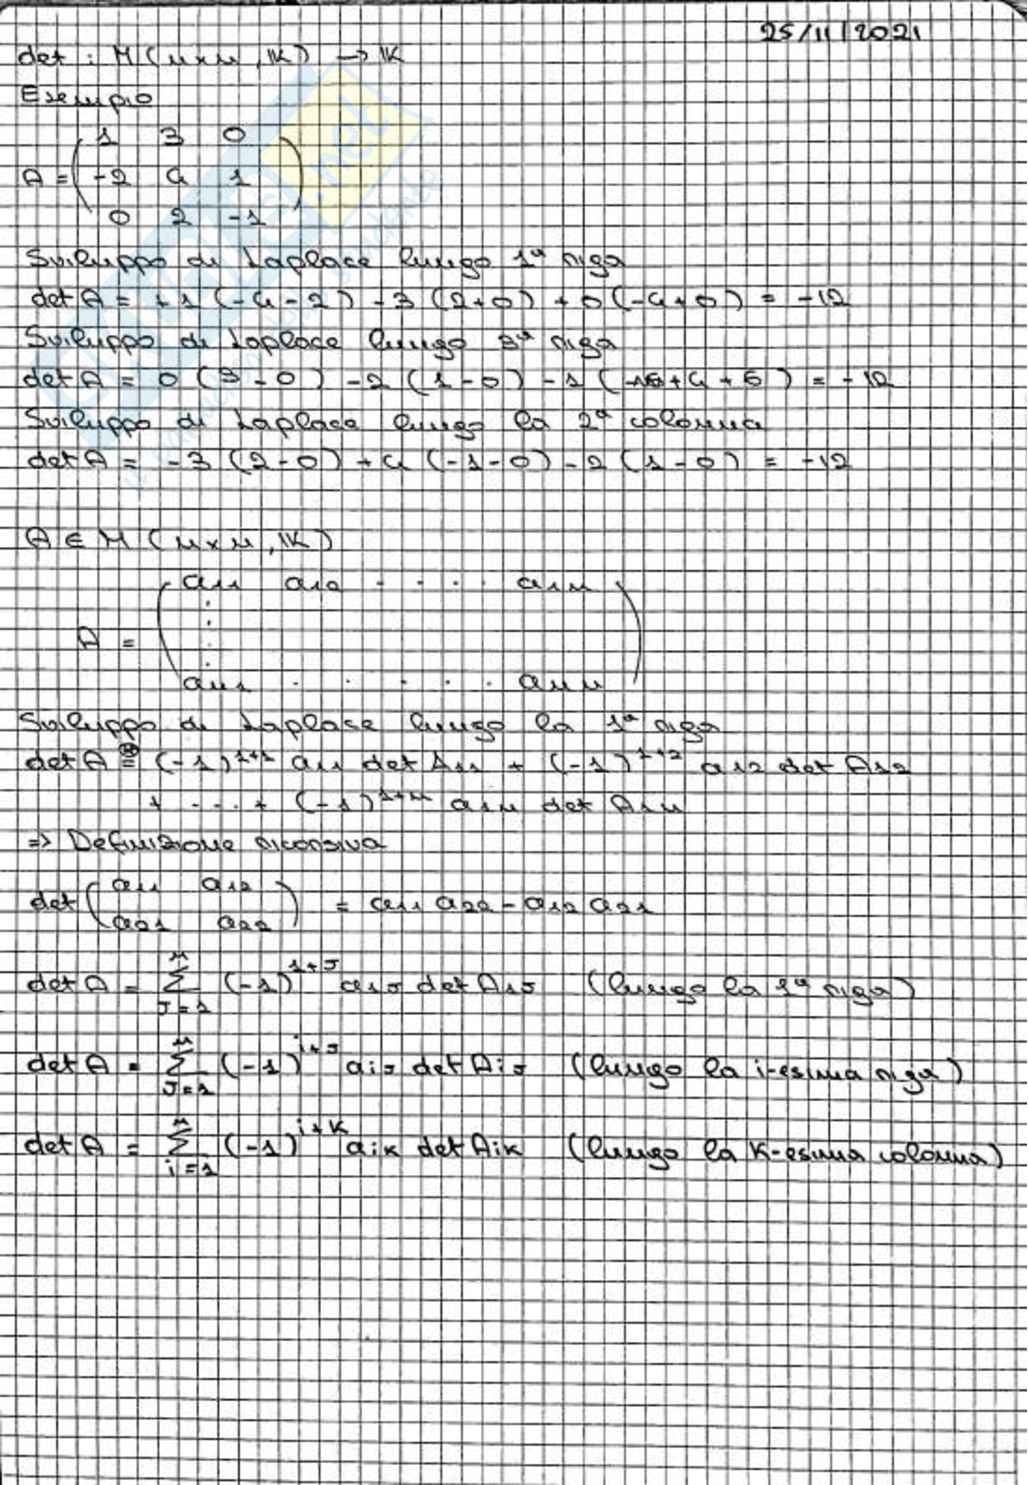 25/11/2021
det : M(n×n, IK) → IK
Esempio
A = ( 1 3 0
-2 4 1
0 2 -1 )
Sviluppo di Laplace lungo 1ª riga
det A = +1 (-4-2) -3 (2+0) +0(-4+0) = -12
Sviluppo di Laplace lungo 3ª riga
det A = 0 (3-0) -2 (1-0) -1 (+4+6) = -12
Sviluppo di Laplace lungo la 2ª colonna
det A = -3 (2-0) +4 (-1-0) -2 (1-0) = -12
A ∈ M (n×n, IK)
A = ( a11 a12 · · · · a1n
⋮
an1 · · · · · ann )
Sviluppo di Laplace lungo la 1ª riga
det A = (-1)^1+1 a11 det A11 + (-1)^1+2 a12 det A12
+ ... + (-1)^1+n a1n det A1n
=> Definizione ricorsiva
det ( a11 a12
a21 a22 ) = a11 a22 - a12 a21
det A = Σ_{J=1}^{n} (-1)^{1+J} a1J det A1J (lungo la 1ª riga)
det A = Σ_{J=1}^{n} (-1)^{i+J} aiJ det AiJ (lungo la i-esima riga)
det A = Σ_{i=1}^{n} (-1)^{i+K} aiK det AiK (lungo la K-esima colonna)